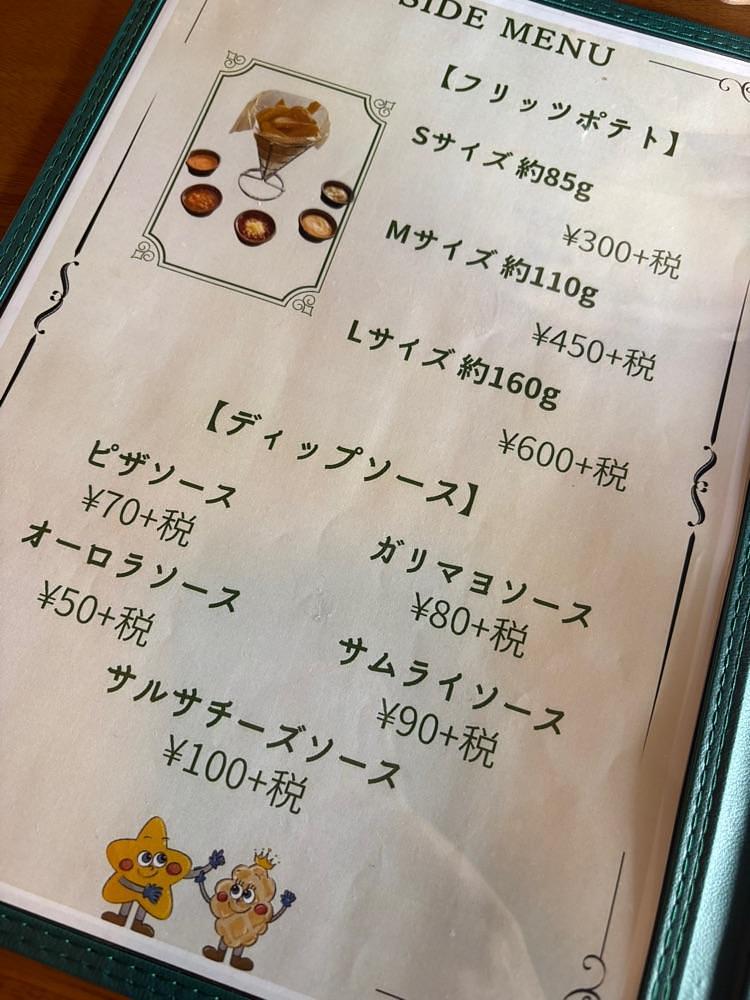 SIDE MENU
【フリッツポテト】
Sサイズ 約85g
¥300+税
Mサイズ 約110g
¥450+税
Lサイズ 約160g
¥600+税
【ディップソース】
ピザソース
¥70+税
ガリマヨソース
¥80+税
オーロラソース
¥50+税
サムライソース
¥90+税
サルサチーズソース
¥100+税